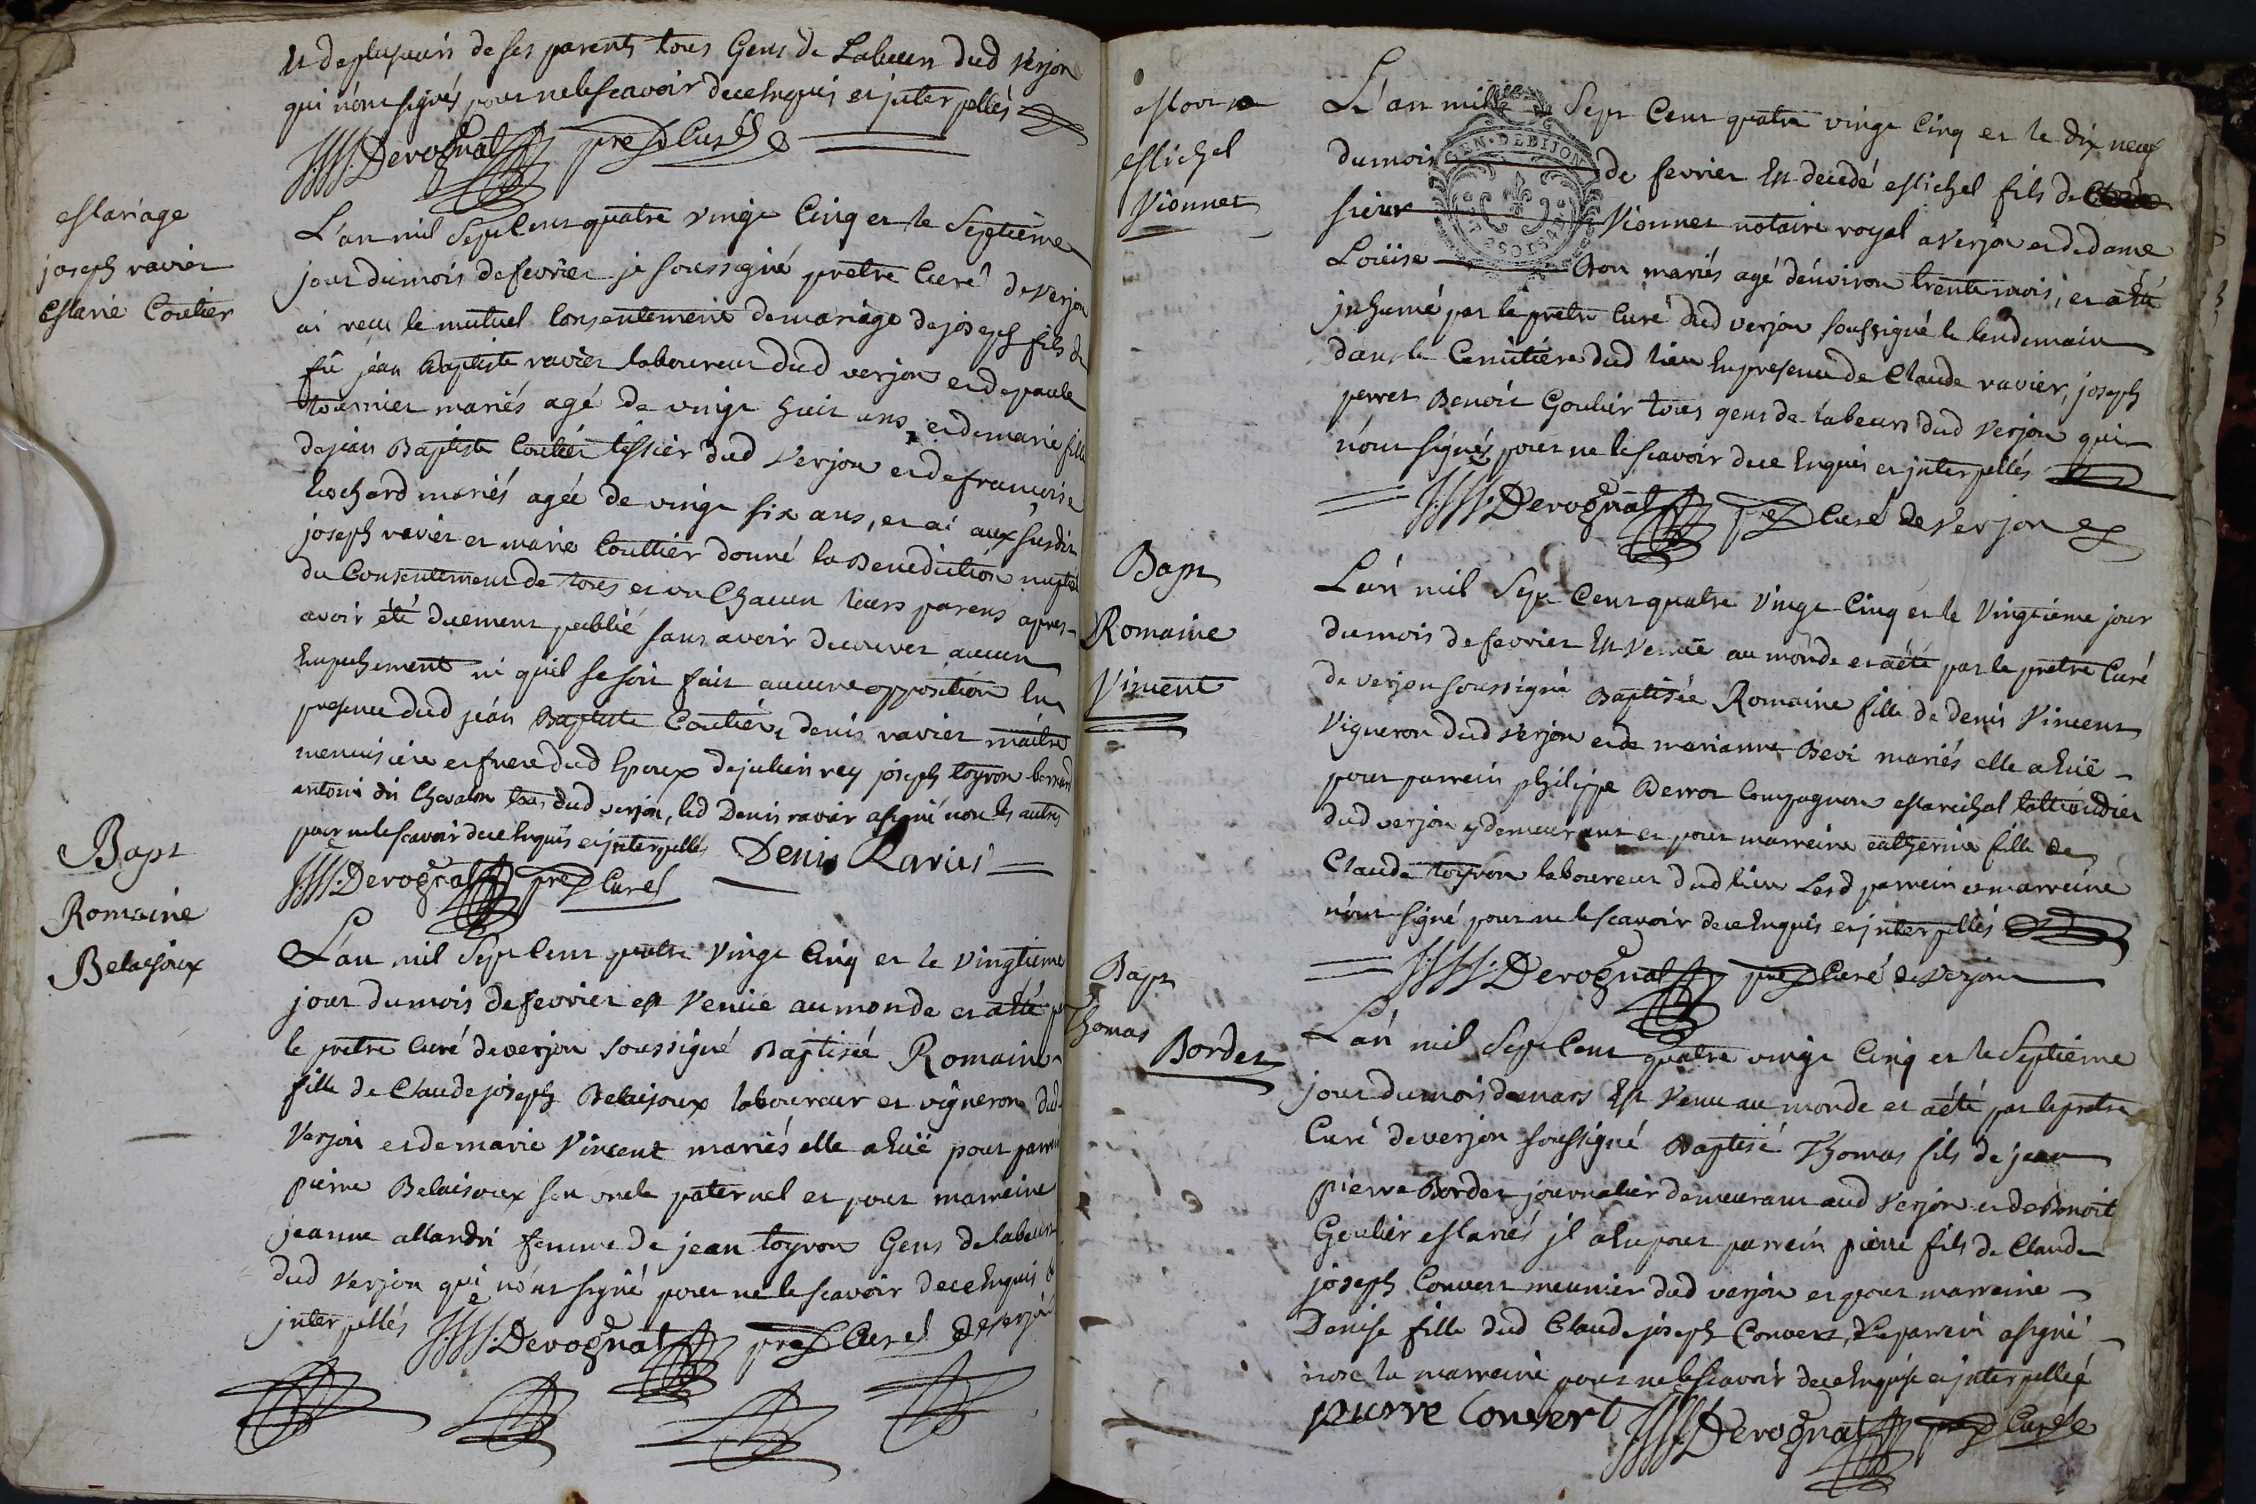 et de plusieurs de ses parents tous Gens de Labeur dud verjon
qui n'ont signés pour ne le scavoir de ce enquis et interpellés
Devognat pre Curé
Mariage
joseph ravier
Marie Coutier
L'an mil Sept Cent quatre vingt Cinq et le Septieme
jour du mois de fevrier je soussigné pretre Curé de verjon
ai reçu le mutuel Consentement de mariage de joseph fils de
fû jean Baptiste ravier laboureur dud verjon et de paule
tournier mariés agé de vingt huit ans, et de marie fille
de jean Baptiste Coutier tissier dud verjon et de françoise
mariés agée de vingt six ans, et ai aux susdits
joseph ravier et marie Couttier donné la Benediction nuptial
du Consentement de tous et un Chacun leurs parens apres
avoir été duement publié sans avoir decouvert aucun
Empechement ni quil se soit fait aucune opposition En
presence dud jean Baptiste Coutier, denis ravier maître
menuisier et frere dud Epoux de julien rey joseph toyron bernard
antoine dit Chevalon tous dud verjon, led Denis ravier a signé non les autres
pour ne le scavoir de ce Enquis et interpellés Denis Ravier
Devognat pre Curé
Bapt
Romaine
Belaisoux
L'an mil Sept Cent quatre Vingt Cinq et le vingtieme
jour du mois de fevrier est Venue au monde et a été par
le pretre Curé de verjon soussigné Baptisée Romaine
fille de Claude joseph Belaisoux laboureur et vigneron dud
Verjon et de marie Vincent mariés elle a Euë pour parrein
pierre Belaisoux son oncle paternel et pour marreine
jeanne allandri femme de jean toyron Gens de labeur
dud verjon qui n'ont signé pour ne le scavoir de ce Enquis et
interpellés Devognat pre Curé de verjon
Mort
Michel
Vionnet
L'an mille Sept Cent quatre vingt Cinq et le dix neuf
du mois de fevrier Est decedé Michel fils de
sieur Vionnet notaire royal a verjon et de dame
Loüise Bon mariés agé d'environ trente mois, et a été
inhumé par le pretre Curé dud verjon soussigné le lendemain
dans le Cemitiére dud lieu En presence de Claude ravier, joseph
perret Benoit Goulier tous gens de labeurs dud Verjon qui
n'ont signés pour ne le scavoir de ce Enquis et interpellés
Devognat pre Curé de Verjon
GEN. DE DIJON
Bapt
Romaine
Vincent
L'an mil Sept Cent quatre Vingt Cinq et le Vingtieme jour
du mois de fevrier Est Venuë au monde et a été par le pretre Curé
de verjon soussigné Baptisée Romaine fille de denis Vincent
Vigneron dud verjon et de marianne Bevi mariés elle a Euë
pour parrein philippe Berrot Compagnon Marechal
dud verjon y demeurant et pour marreine catherine fille de
Claude toyron laboureur dud lieu Lesd parrein et marreine
n'ont signé pour ne le scavoir de ce Enquis et interpellés
Devognat pre Curé de verjon
Bapt
Thomas
Bordet
L'an mil Sept Cent quatre vingt Cinq et le Septieme
jour du mois de mars Est Venu au monde et a été par le pretre
Curé de verjon soussigné Baptisé Thomas fils de jean
pierre Bordet journalier demeurant aud Verjon et de Benoit
Goulier Mariés il a Eu pour parrein pierre fils de Claude
joseph Convert meunier dud verjon et pour marreine
Denise fille dud Claude joseph Convert, Le parrein a signé
non la marreine pour ne le scavoir de ce Enquise et interpellée
pierre Convert Devognat pre Curé